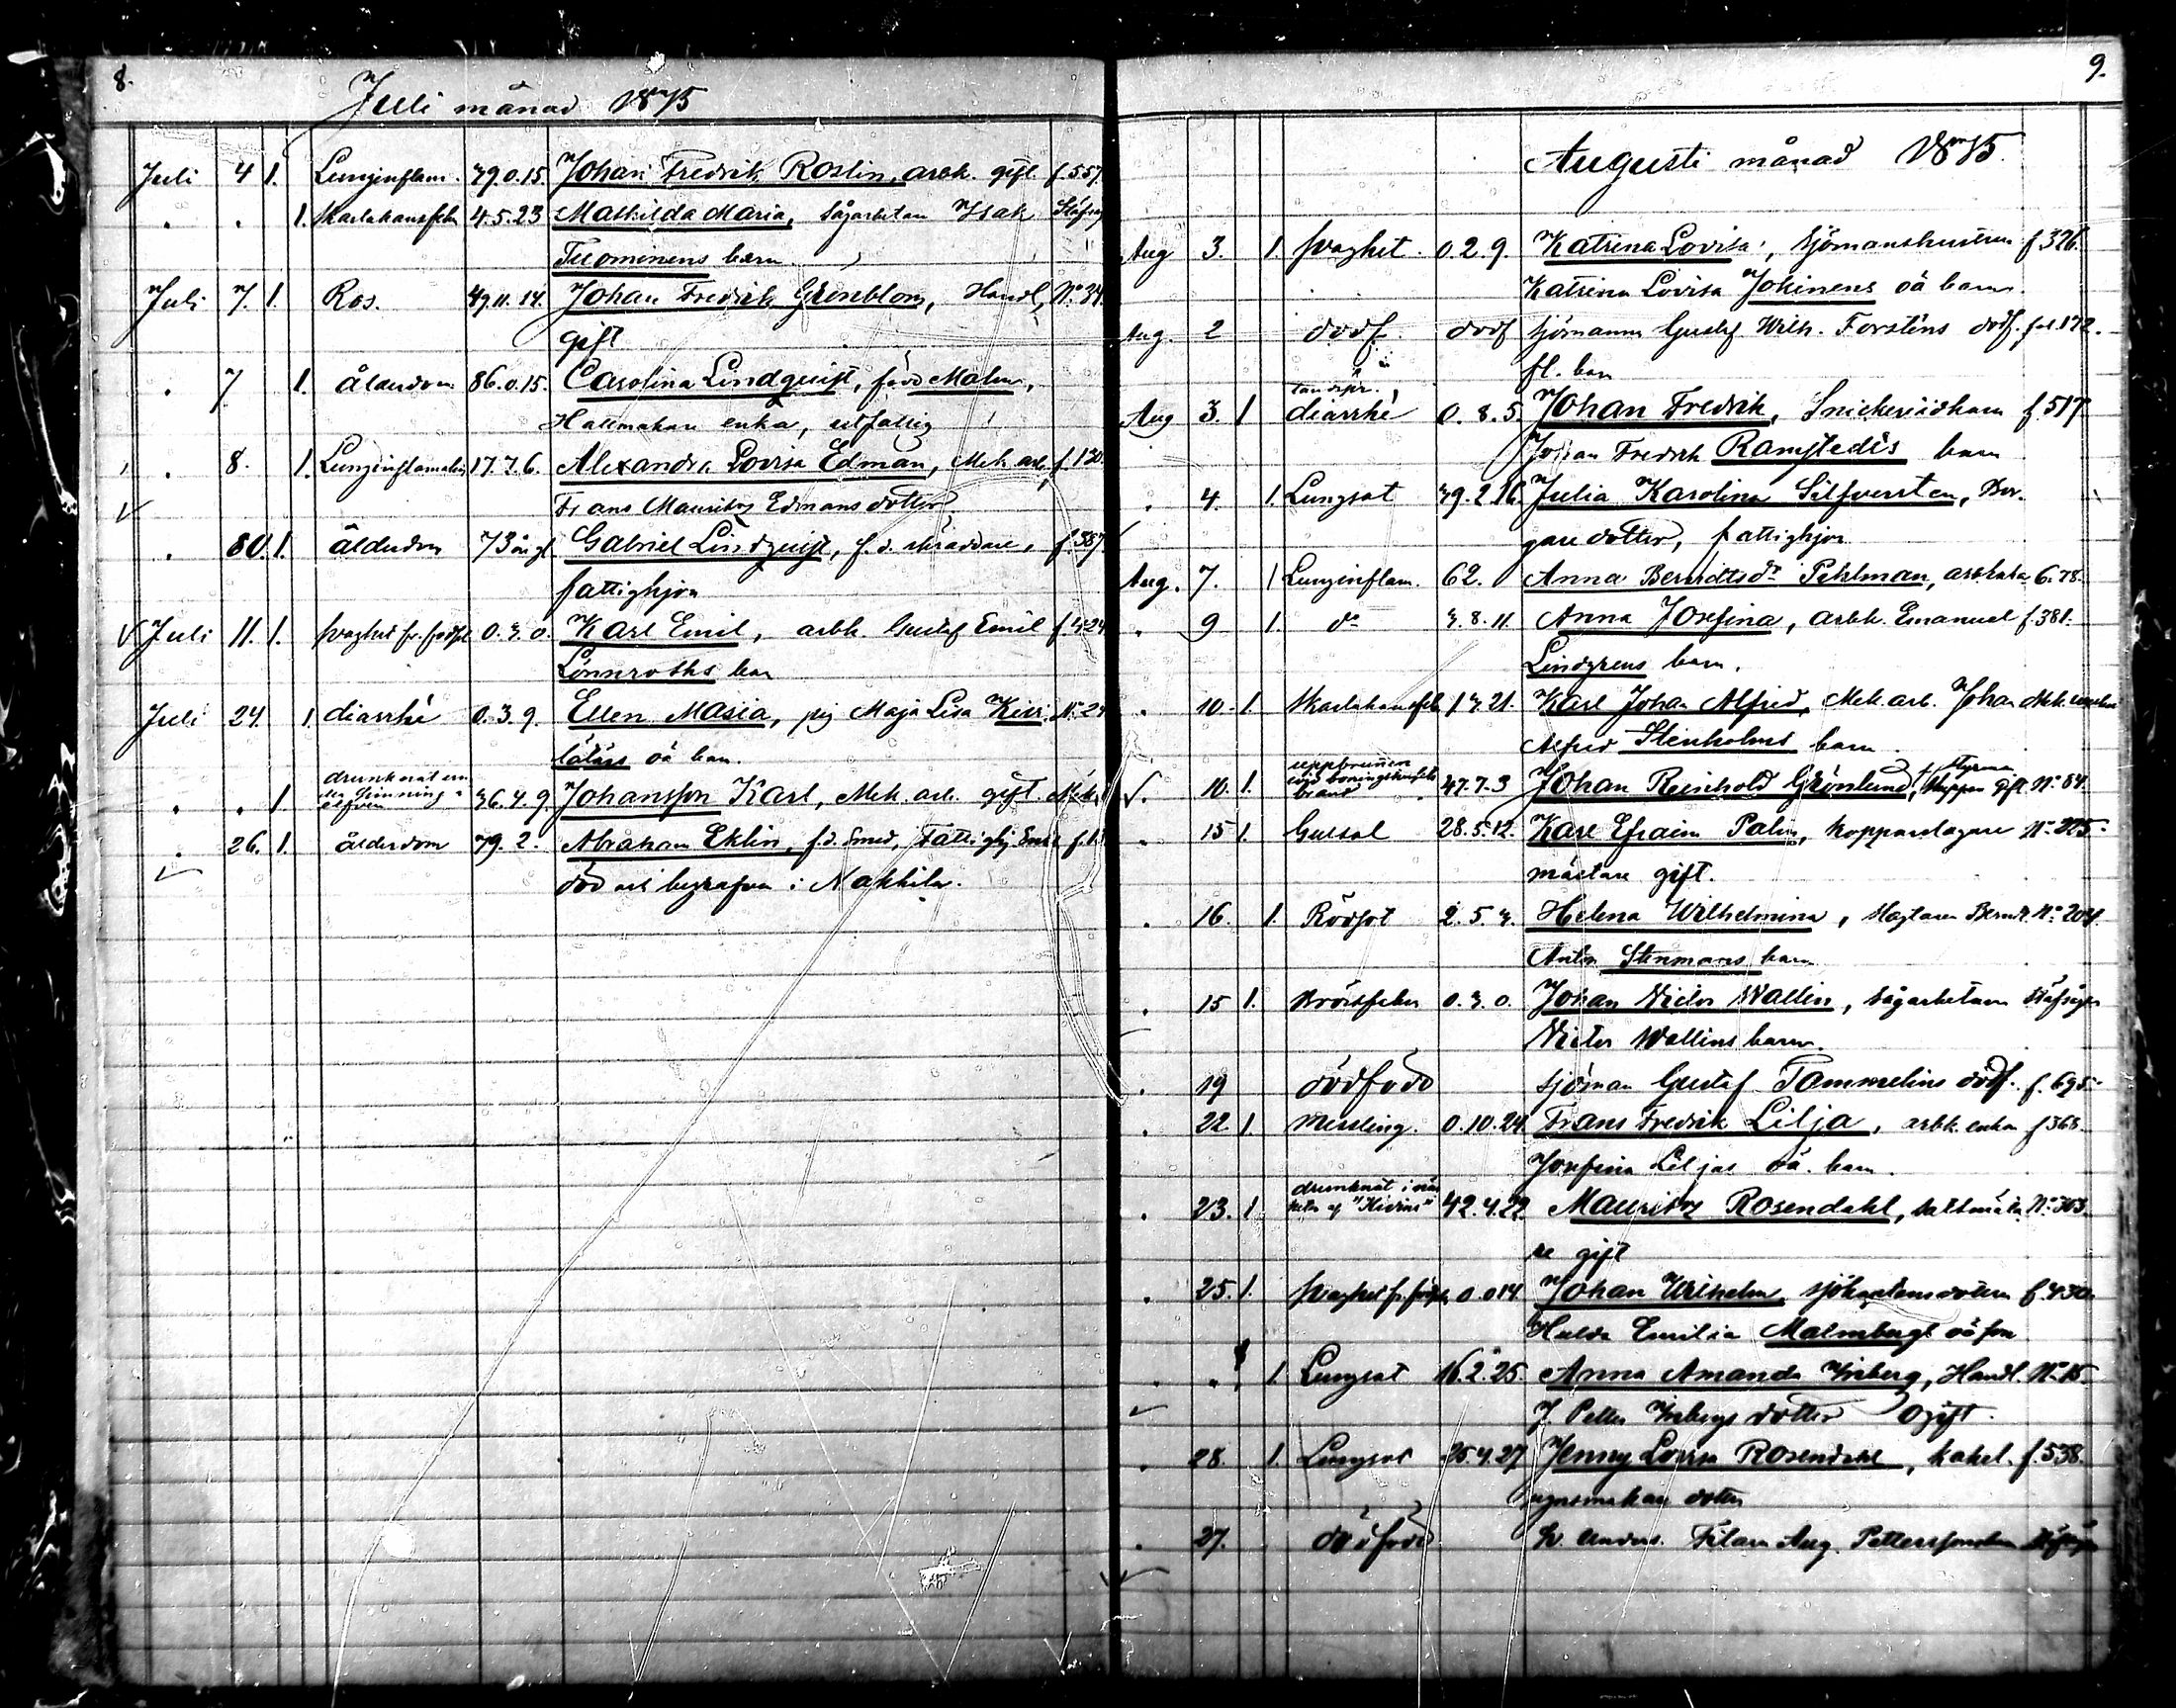 8.
Juli månad 1875
Juli 4 1. Lunginflam. 39.0.15. Johan Fredrik Roslin, arbk. gift f.557.
" " 1. Skarlakansfeber 4.5.23 Mathilda Maria, Sågarbetaren Isak
Tuominens barn
Juli 7. 1. Ros. 49.11.14. Johan Fredrik Grönblom, Handl, No 34.
gift
" 7 1. ålderdom 86.0.15. Carolina Lindqvist, född Malm,
Hattmakare enka, utfattig
" 8. 1. Lunginflamation 17.7.6. Alexandra Lovisa Edman, Mek. arb. f.120.
Frans Mauritz Edmans dotter.
" 80. 1. ålderdom 73 år gl Gabriel Lindqvist, f.d. skräddare, f.387
fattighjon
Juli 11. 1. svaghet fr. födsel 0.3.0. Karl Emil, arbk. Gustaf Emil f.424
Lönnroths barn
Juli 24. 1. diarrhé 0.3.9. Ellen Maria, pig Maja Lisa Kivi No 24
lätärs oä barn.
drunknat un
der simning i
elfven
" " 1. 36.4.9. Johansson Karl, Mek. arb. gift Mek.
" 26. 1. ålderdom 79.2. Abraham Eklin, f.d. Smed, Fattighj. Enkl.
död och begrafven i Nakkila.
9.
Augusti månad 1875.
Aug 3. 1. svaghet. 0.2.9. Katrina Lovisa, sjömanshustrun f.326.
Katrina Lovisa Johinens oä barn.
Aug. 2 dödf. dödf sjömannen Gustaf Wilh. Forsténs dödf. fol.172.
fl. barn
tandspr.
Aug 3. 1 diarrhé 0.8.5. Johan Fredrik, Snickeriidkaren f.517
Johan Fredrik Ramstedts barn
" 4. 1. Lungsot 39.2.16. Julia Karolina Silfversten, Bor-
garedotter, fattighjon
Aug. 7. 1 Lunginflam. 62. Anna Berndtsdr Pehlman, 6.78.
" 9 1. do 3.8.11. Anna Josefina, arbk. Emanuel f.381.
Lindgrens barn.
" 10. 1. Skarlakansfeb 1.3.21. Karl Johan Alfred, Mek. arb. Johan Mek. verkst
Alfred Stenholms barn.
uppbrunnen
vid boningshusets
brand
" 10. 1. 47.7.3 Johan Reinhold Grönlund, Skeppar gift No 84.
" 15 1. Gulsot 28.5.12. Karl Efraim Palin, kopparslagare No 225.
mästare gift.
" 16. 1. Rödsot 2.5.3. Helena Wilhelmina, slagtaren Berndt No 204.
Anton Stenmans barn
" 15 1. Bröstfeber 0.3.0. Johan Victor Wallin, sågarbetaren
Victor Wallins barn.
" 19 dödfödd sjöman Gustaf Tammelins dödf. f.695.
" 22 1. Messling. 0.10.24. Frans Fredrik Lilja, arbk. enkan f.368.
Josefina Liljas oä. barn.
drunknat i när
heten af "Kivini"
" 23. 1. 42.4.22 Mauritz Rosendahl, saltmäta No 303.
re gift
" 25. 1. svaghet fr. födseln 0.0.14. Johan Wilhelm, sjökaptensdottern f.430.
Hulda Emilia Malmbergs oä son
" " 1. Lungsot 16.2.25. Anna Amanda Inberg, Handl. No 15.
J Petter Inbergs dotter Ogift.
" 28. 1. Lungsot 25.4.27 Jenny Lovisa Rosendahl, kakel- f.538.
ugnsmakare dotter
" 27. dödfödd Filare Aug. Petterssons